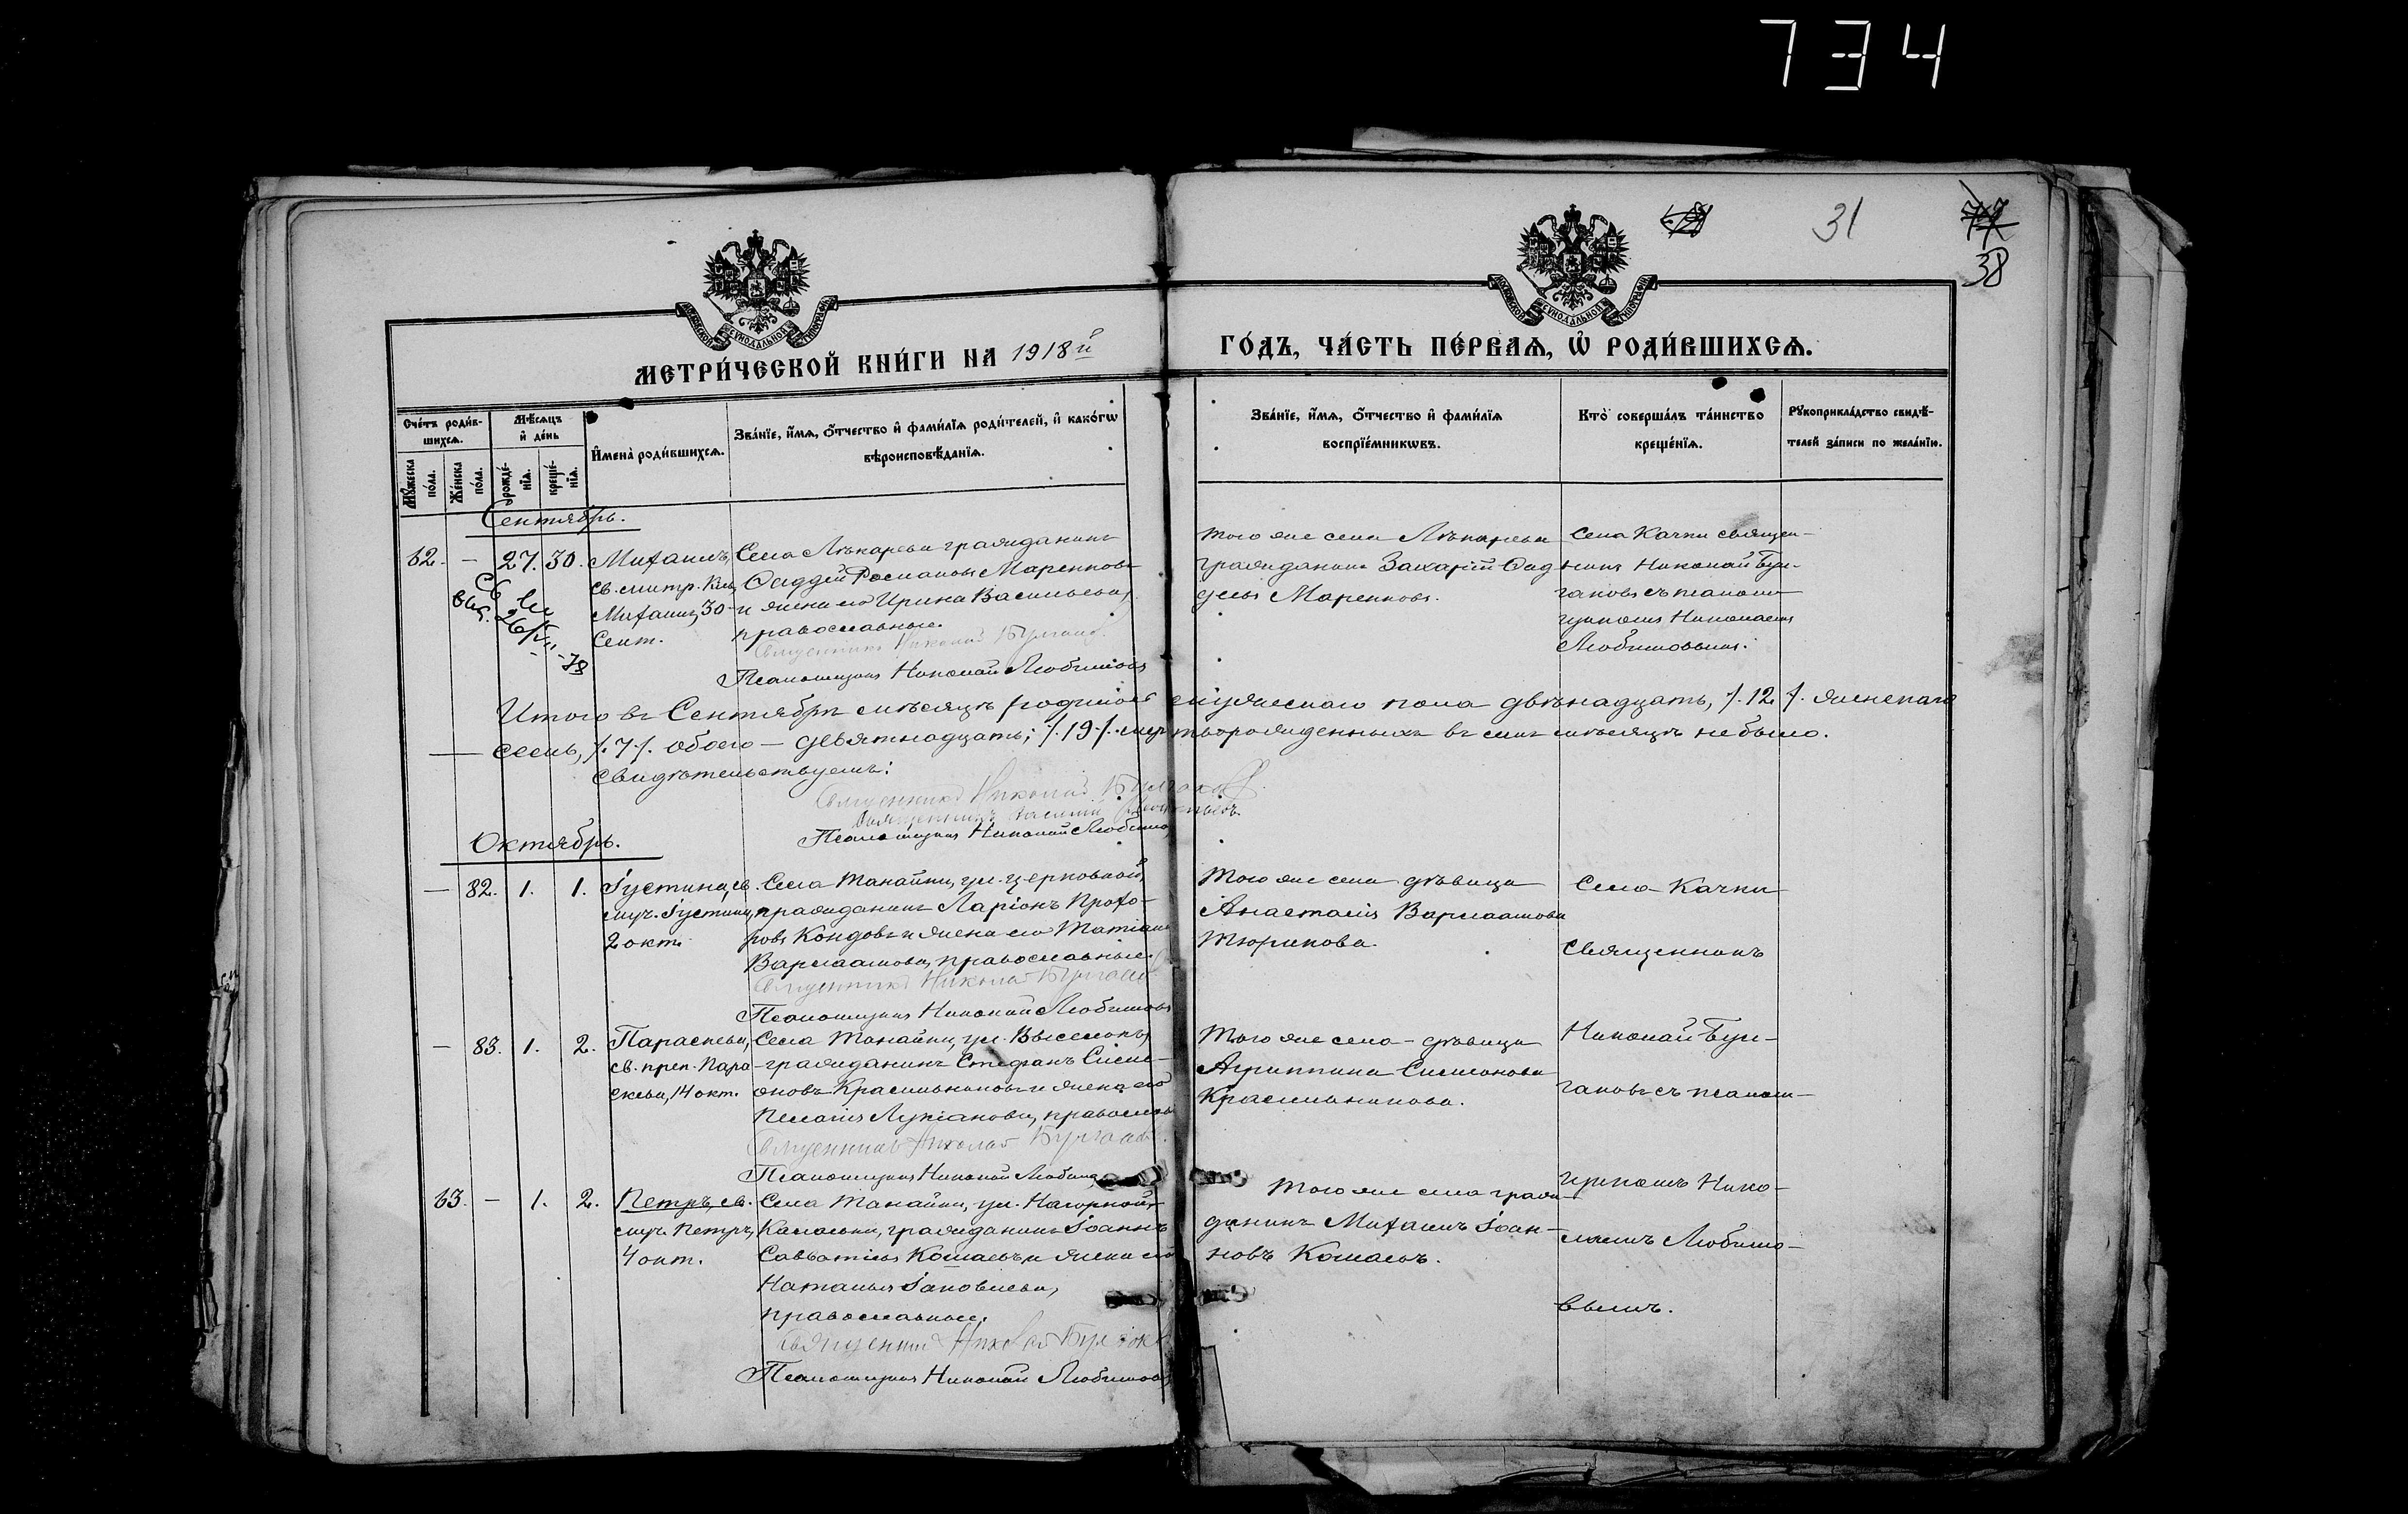 734
31
38
МЕТРИ́ЧЕСКОЙ КНИ́ГИ НА 1918й
ГО́ДЪ, ЧА́СТЬ ПЕ́РВАѦ, Ѡ҆ РОДИ́ВШИХСѦ.
Сче́тъ роди́в-
шихсѧ.
Мѣ́сѧцъ
и҆ де́нь
И҆мена̀ роди́вшихсѧ.
Зва́нїе, и҆́мѧ, ѻ҆́тчество и҆ фами́лїѧ роди́телей, и҆ како́гѡ
вѣроисповѣ́данїѧ.
Мꙋ́жеска
по́ла.
Же́нска
по́ла.
рожде́-
нїѧ.
креще́-
нїѧ.
Зва́нїе, и҆́мѧ, ѻ҆́тчество и҆ фами́лїѧ
воспрїе́мникѡвъ.
Кто̀ соверша́лъ та́инство
креще́нїѧ.
Рꙋкоприкла́дство свидѣ́-
телей за́писи по жела́нїю.
Сентябрь.
62. — 27. 30.
Михаилъ,
св. митр. Кіев.
Михаилъ, 30
Сент.
Села Лѣкарева гражданинъ
Фаддей Романовъ Маренковъ
и жена его Ирина Васильева,
православные.
Священникъ Николай Булгаковъ
Псаломщикъ Николай Любимовъ
Того же села Лѣкарева
гражданинъ Захарій Фад-
деевъ Маренковъ.
Села Качки священ-
никъ Николай Бул-
гаковъ съ псаломщ-
щикомъ Николаемъ
Любимовымъ.
Итого въ Сентябрѣ мѣсяцѣ родилось мужескаго пола двѣнадцать, /.12./. женскаго
— семь, /.7./. обоего — девятнадцать; /.19./. мертворожденныхъ въ семъ мѣсяцѣ не было.
Свидѣтельствуемъ:
Священникъ Николай Булгаковъ.
Священникъ Василій
Псаломщикъ Николай Любимо
Октябрь.
— 82. 1. 1.
Іустина, св.
муч. Іустины,
2 окт.
Села Танайки, ул. Церковной,
гражданинъ Ларіонъ Прохо-
ровъ Кондовъ и жена его Татіана
Варлаамова, православные.
Священникъ Николай Булгаковъ
Псаломщикъ Николай Любимовъ
Того же села дѣвица
Анастасія Варлаамова
Тюрикова.
Села Качки
священникъ
Николай Бул-
гаковъ съ псалом-
щикомъ Нико-
лаемъ Любимо-
вымъ.
— 83. 1. 2.
Параскева,
св. преп. Пара-
скева, 14 окт.
Села Танайки, ул. Выселокъ,
гражданинъ Стефанъ Симе-
оновъ Красильниковъ и жена его
Пелагія Лукіанова, православн
Священникъ Николай Булгаковъ.
Псаломщикъ Николай Любимо
Того же села дѣвица
Агриппина Симеонова
Красильникова.
63. — 1. 2.
Петръ, св.
муч. Петръ,
4 окт.
Села Танайки, ул. Нагорной,
гражданинъ Іоаннъ
Савватіевъ Кошаевъ и жена его
Наталья Іаковлева,
православные.
Священникъ Николай Булгаковъ
Псаломщикъ Николай Любимовъ
Того же села граж-
данинъ Михаилъ Іоан-
новъ Кошаевъ.